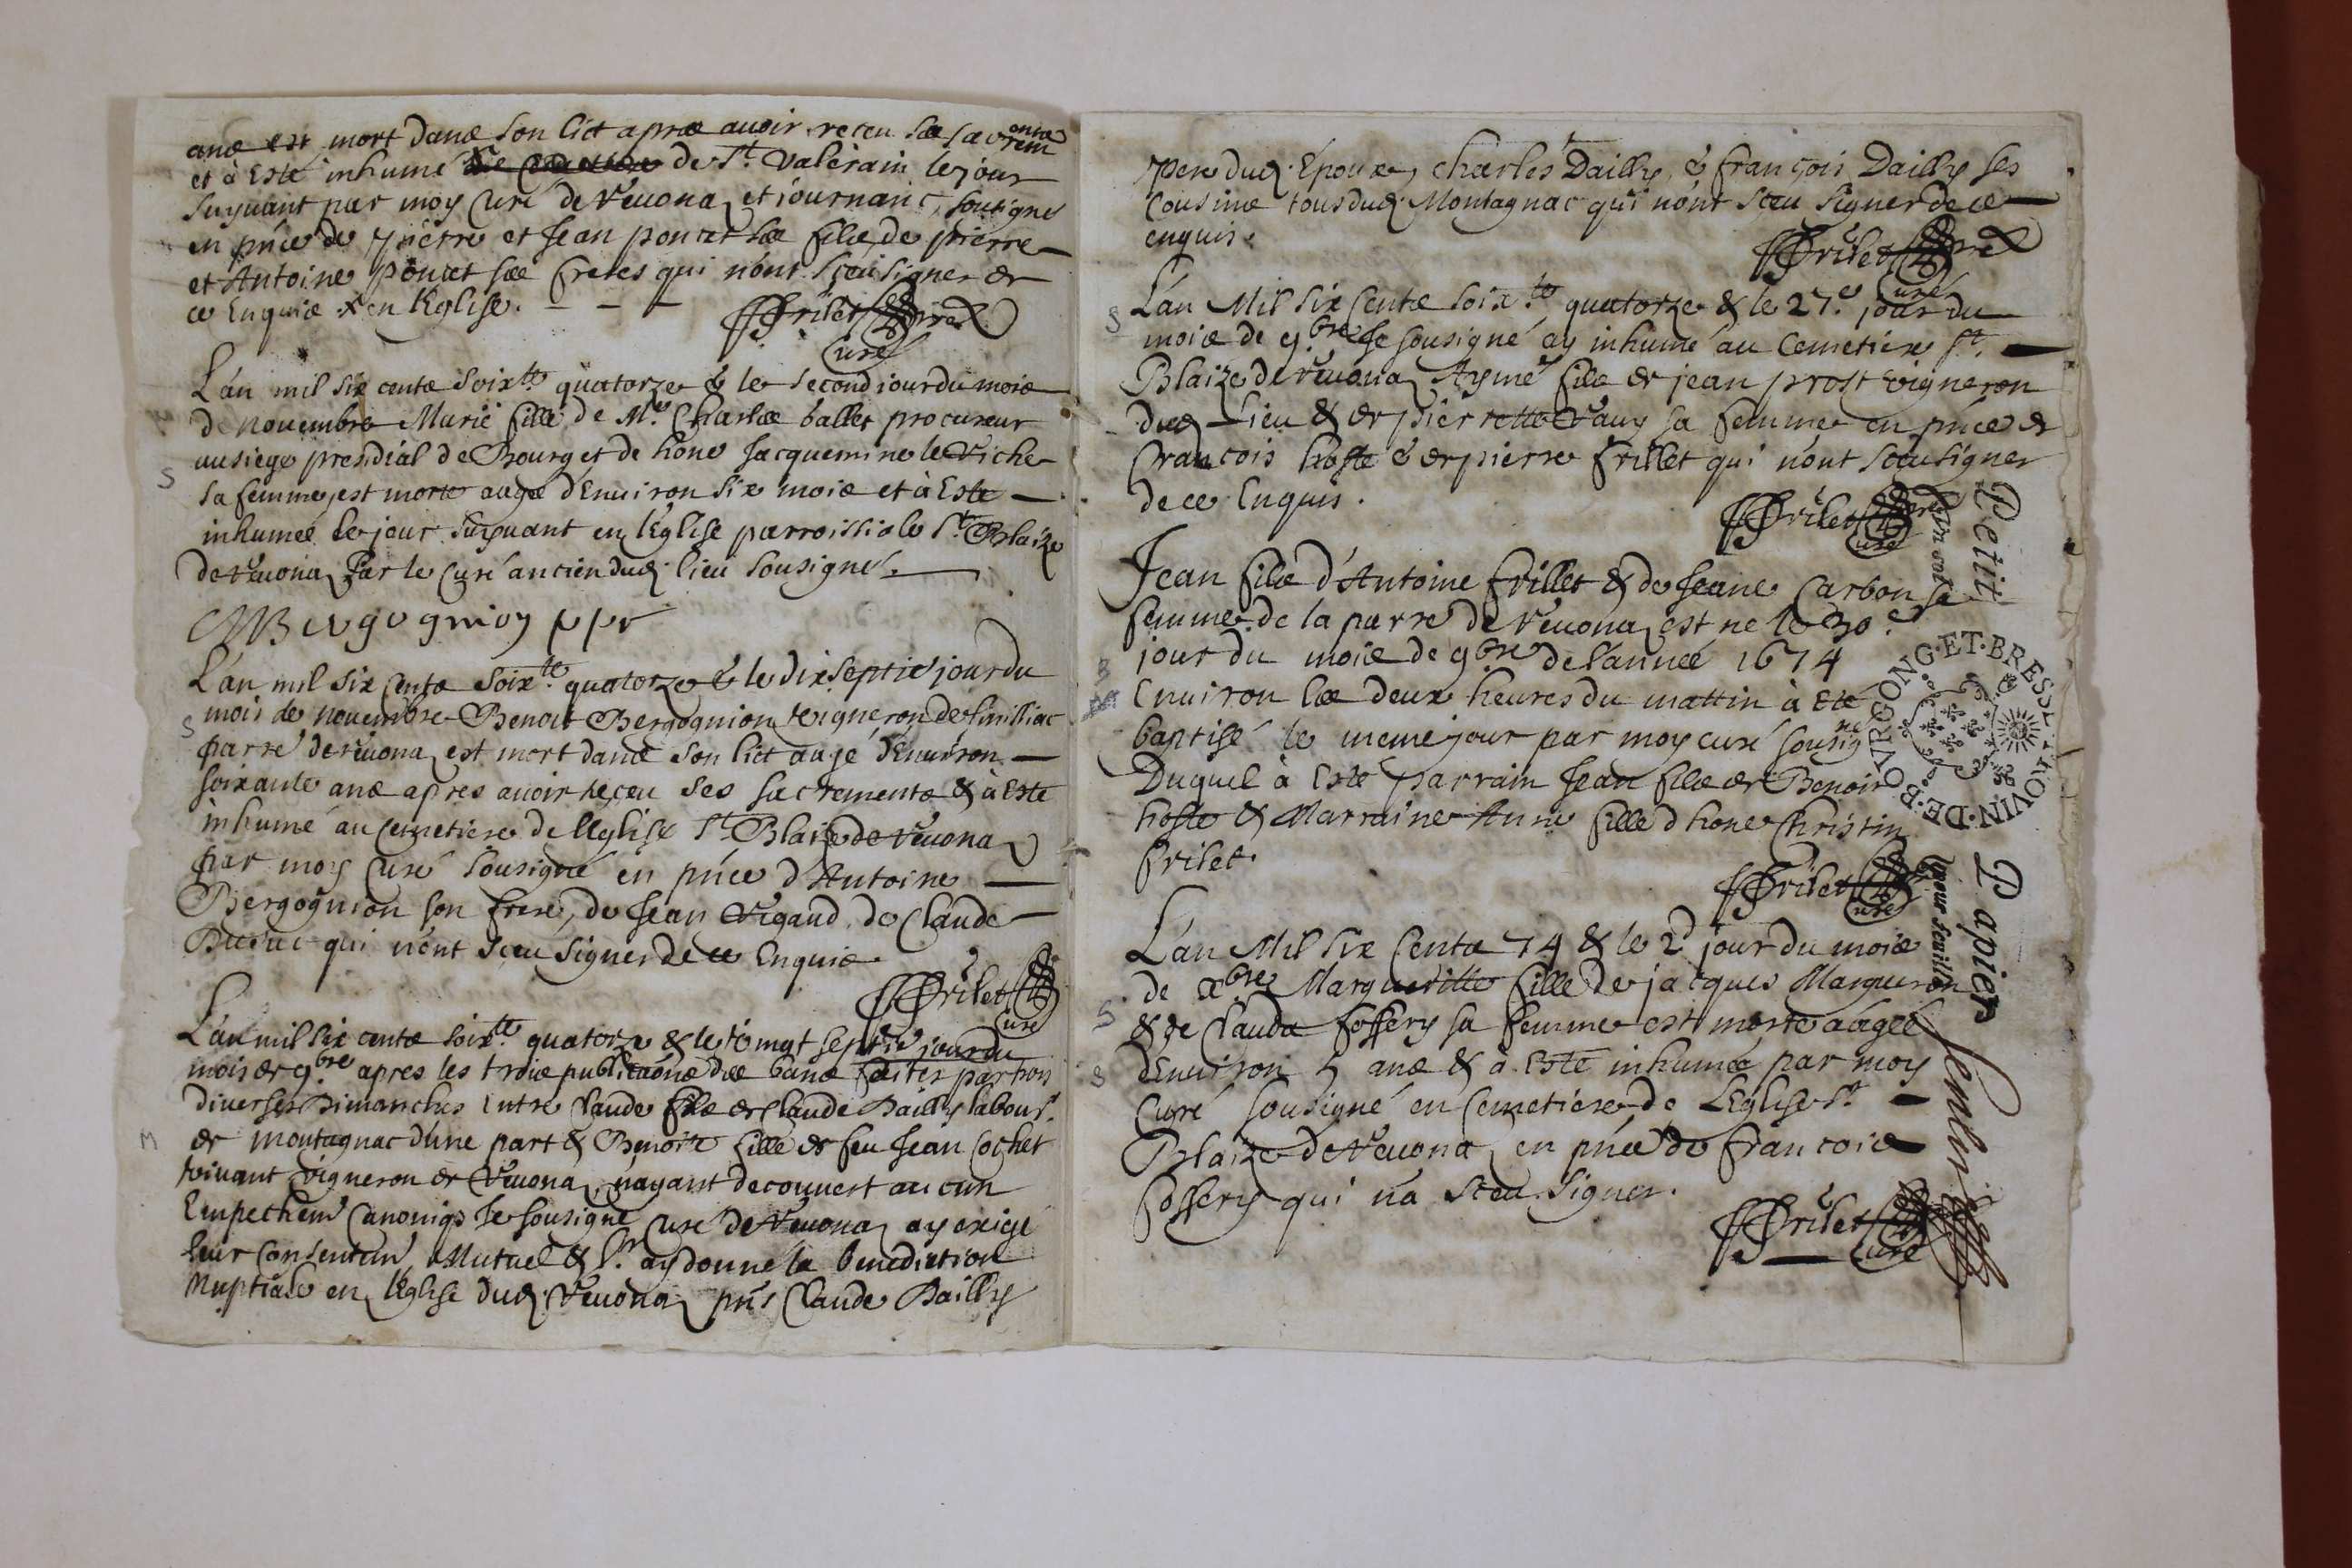 ans est mort dans son lict apres auoir receu ses sacrem
et à Esté inhumé de St. Valérain le jour
Suyuant par moy Curé de Reuona et journanc, sousigné
en pnce de pierre et Jean poncet ses filz, de pierre
et Antoine poncet ses freres qui n'ont sceu signer de
ce Enquis x en l'Eglise. - - -
Frilet
Curé
L'an mil six cents soixte. quatorze & le second jour du mois
de Nouembre Marie fille de Me. Charles ballet procureur
au siege presidial de Bourg et de hone Jacquemine
sa femme, est morte aagee d'Enuiron six mois et à Este
S
inhumeé le jour Suyuant en l'Eglise parroissiale St. Blaize
de Reuona Par le Curé ancien dud. lieu sousigné.
L'an mil six cents soixte. quatorze & le dixseptie jour du
mois de nouembre Benoit Bergognion vigneron de
S
parre de Reuona est mort dans son lict aagé d'Enuiron
soixante ans apres auoir receu ses sacrements & à Esté
inhumé au Cemetiere de l'Eglise St Blaize de Reuona
par moy Curé sousigné en pnce d'Antoine
Bergognion son frere, de Jean Vigaud, de Claude
qui n'ont sceu signer de ce Enquis.
Frilet
Curé
L'an mil six cents soixte. quatorze & le vingt septie jour du
mois de 9.bre apres les trois publicaons des bans faites par trois
diuerses Dimanches Entre Claude filz de Claude Dailly labour.
M
de montagnac d'une part & Benoite fille de feu Jean Cochet
viuant vigneron de Reuona, n'ayant decouuert aucun
Empechem Canoniq Je sousigné Curé de Reuona ay exigé
leur Consentem Mutuel & lr. ay donné la benediction
Nuptiale en l'Eglise dud. Reuona pns Claude Dailly
pere dud. Epoux, Charles Dailly, & françois Dailly ses
Cousins tous dud. Montagnac qui n'ont sceu signer de ce
enquis.
Frilet
Curé
S
L'an Mil six Cents soix.te quatorze & le 27.e jour du
mois de 9.bre Je sousigné ay inhumé au Cemetiere St.
Blaize de Reuona Aymé filz de jean prost vigneron
dud. Lieu & de pierrette Vaux sa femme en pnce de
françois hoste & de pierre frillet qui n'ont sceu signer
de ce Enquis.
Frilet
Curé
Jean filz d'Antoine frillet & de Jeane Carbon sa
femme de la parre de Reuona est né le 30.e
jour du mois de 9bre de l'anneé 1674
B
Enuiron les deux heures du mattin à Eté
baptisé le meme jour par moy curé sousigné
Duquel à Esté parrain Jean filz de Benoit
hoste & Marraine Anne fille d'hone Christin
frilet.
Frilet
Curé
L'an Mil six Cents 74 & le 2d jour du mois
de xbre Margueritte fille de jacques Margueron
S
& de Clauda foffery sa femme est morte aageé
S
d'Enuiron 5 ans & à Esté inhumée par moy
Curé sousigné en Cemetiere de L'Eglise St
Blaize de Reuona en pnce de françois
foffery qui n'a sceu signer.
Frilet
Curé
Petit Papier
Un sol pour feuille
PROVIN·DE·BOVRGONG·ET·BRESSE